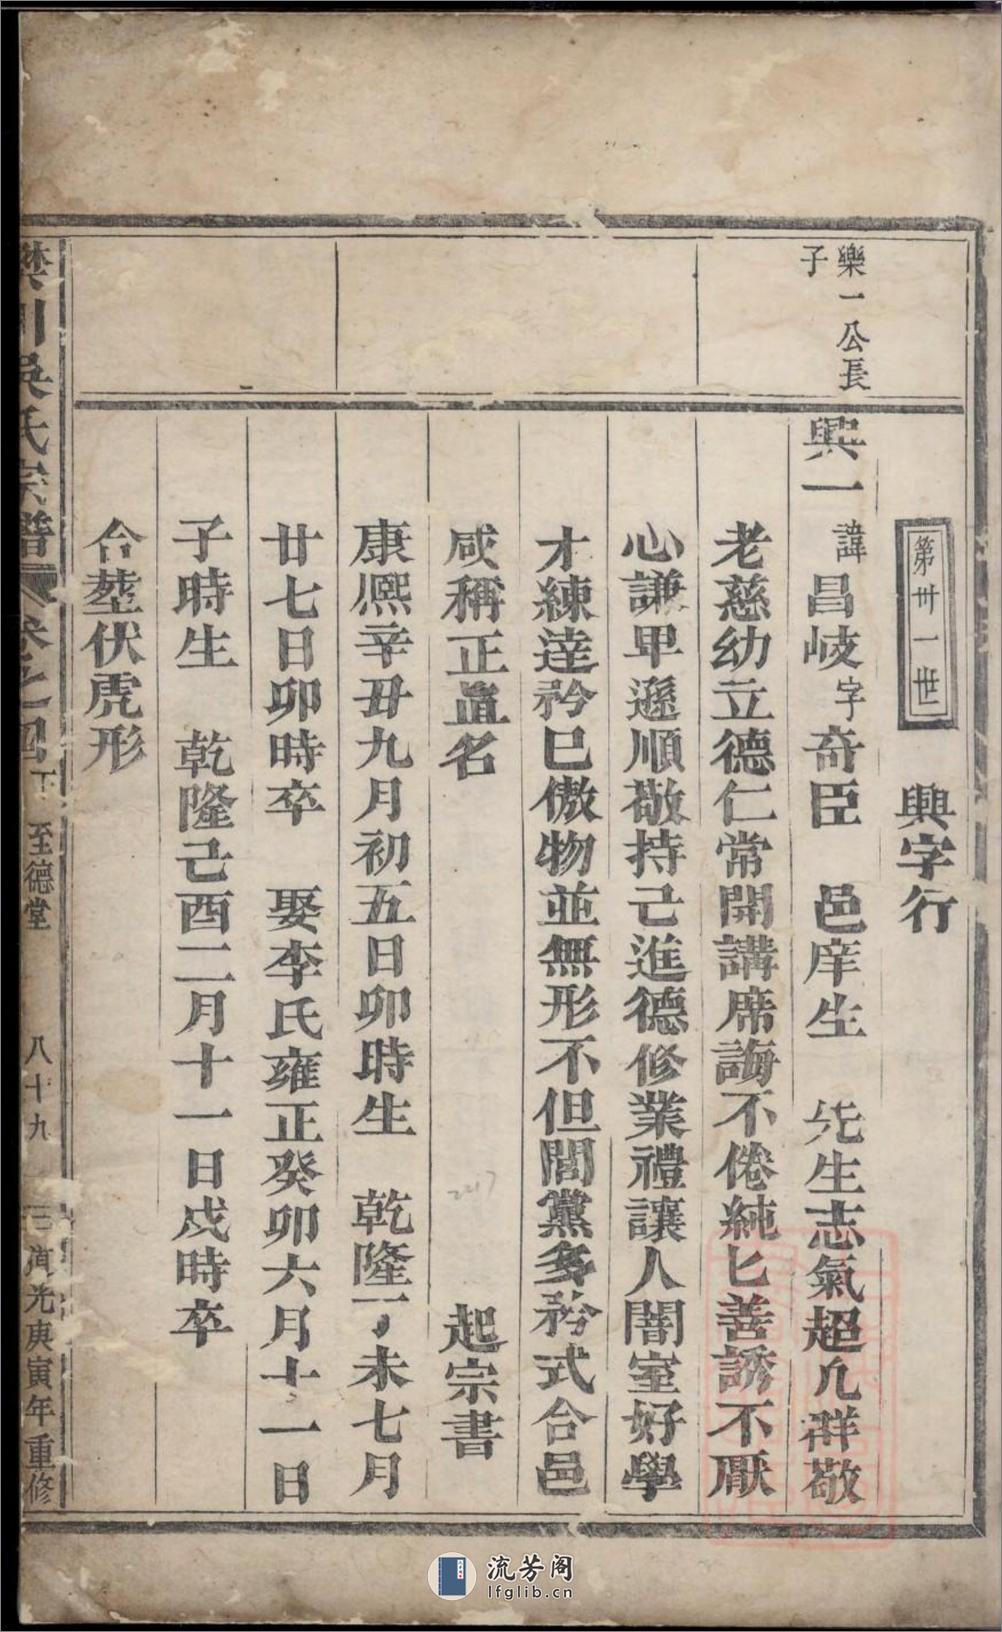 第卅一世　興字行
樂一公長
子
興一　諱昌岐字奇臣　邑庠生　先生志氣超凡群敬
老慈幼立德仁常開講席誨不倦純匕善誘不厭
心謙卑遜順敬持己進德修業禮讓人闇室好學
才練達矜巳傲物並無形不但閭黨多矜式合邑
咸稱正直名　起宗書
康熙辛丑九月初五日卯時生　乾隆丁未七月
廿七日卯時卒　娶李氏雍正癸卯六月十一日
子時生　乾隆己酉二月十一日戌時卒
合塟伏虎形
川吳氏宗譜　卷之四下　至德堂　八十九　道光庚寅年重修
流芳阁
lfglib.cn